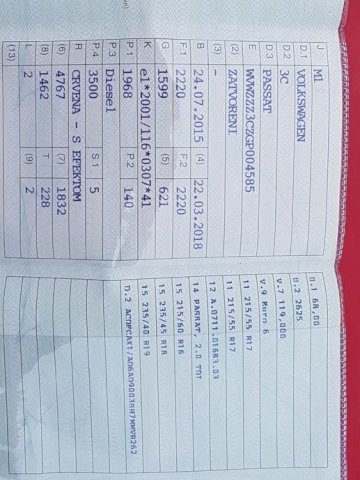 J M1
D.1 VOLKSWAGEN
D.2 3C
D.3 PASSAT
E WVWZZZ3CZGP004585
(2) ZATVORENI
(3) -
B 24.07.2015 (4) 22.03.2018
F.1 2220 F.2 2220
G 1599 (5) 621
K e1*2001/116*0307*41
P.1 1968 P.2 140
P.3 Diesel
P.4 3500 S.1 5
R CRVENA - S EFEKTOM
(6) 4767 (7) 1832
(8) 1462 T 228
L 2 (9) 2
(13)
O.1 68,00
O.2 2625
V.7 119,000
V.9 Euro 6
11 215/55 R17
11 215/55 R17
12 A.0711.01683.03
14 PASSAT 2.0 TDI
15 215/60 R16
15 235/45 R18
15 235/40 R19